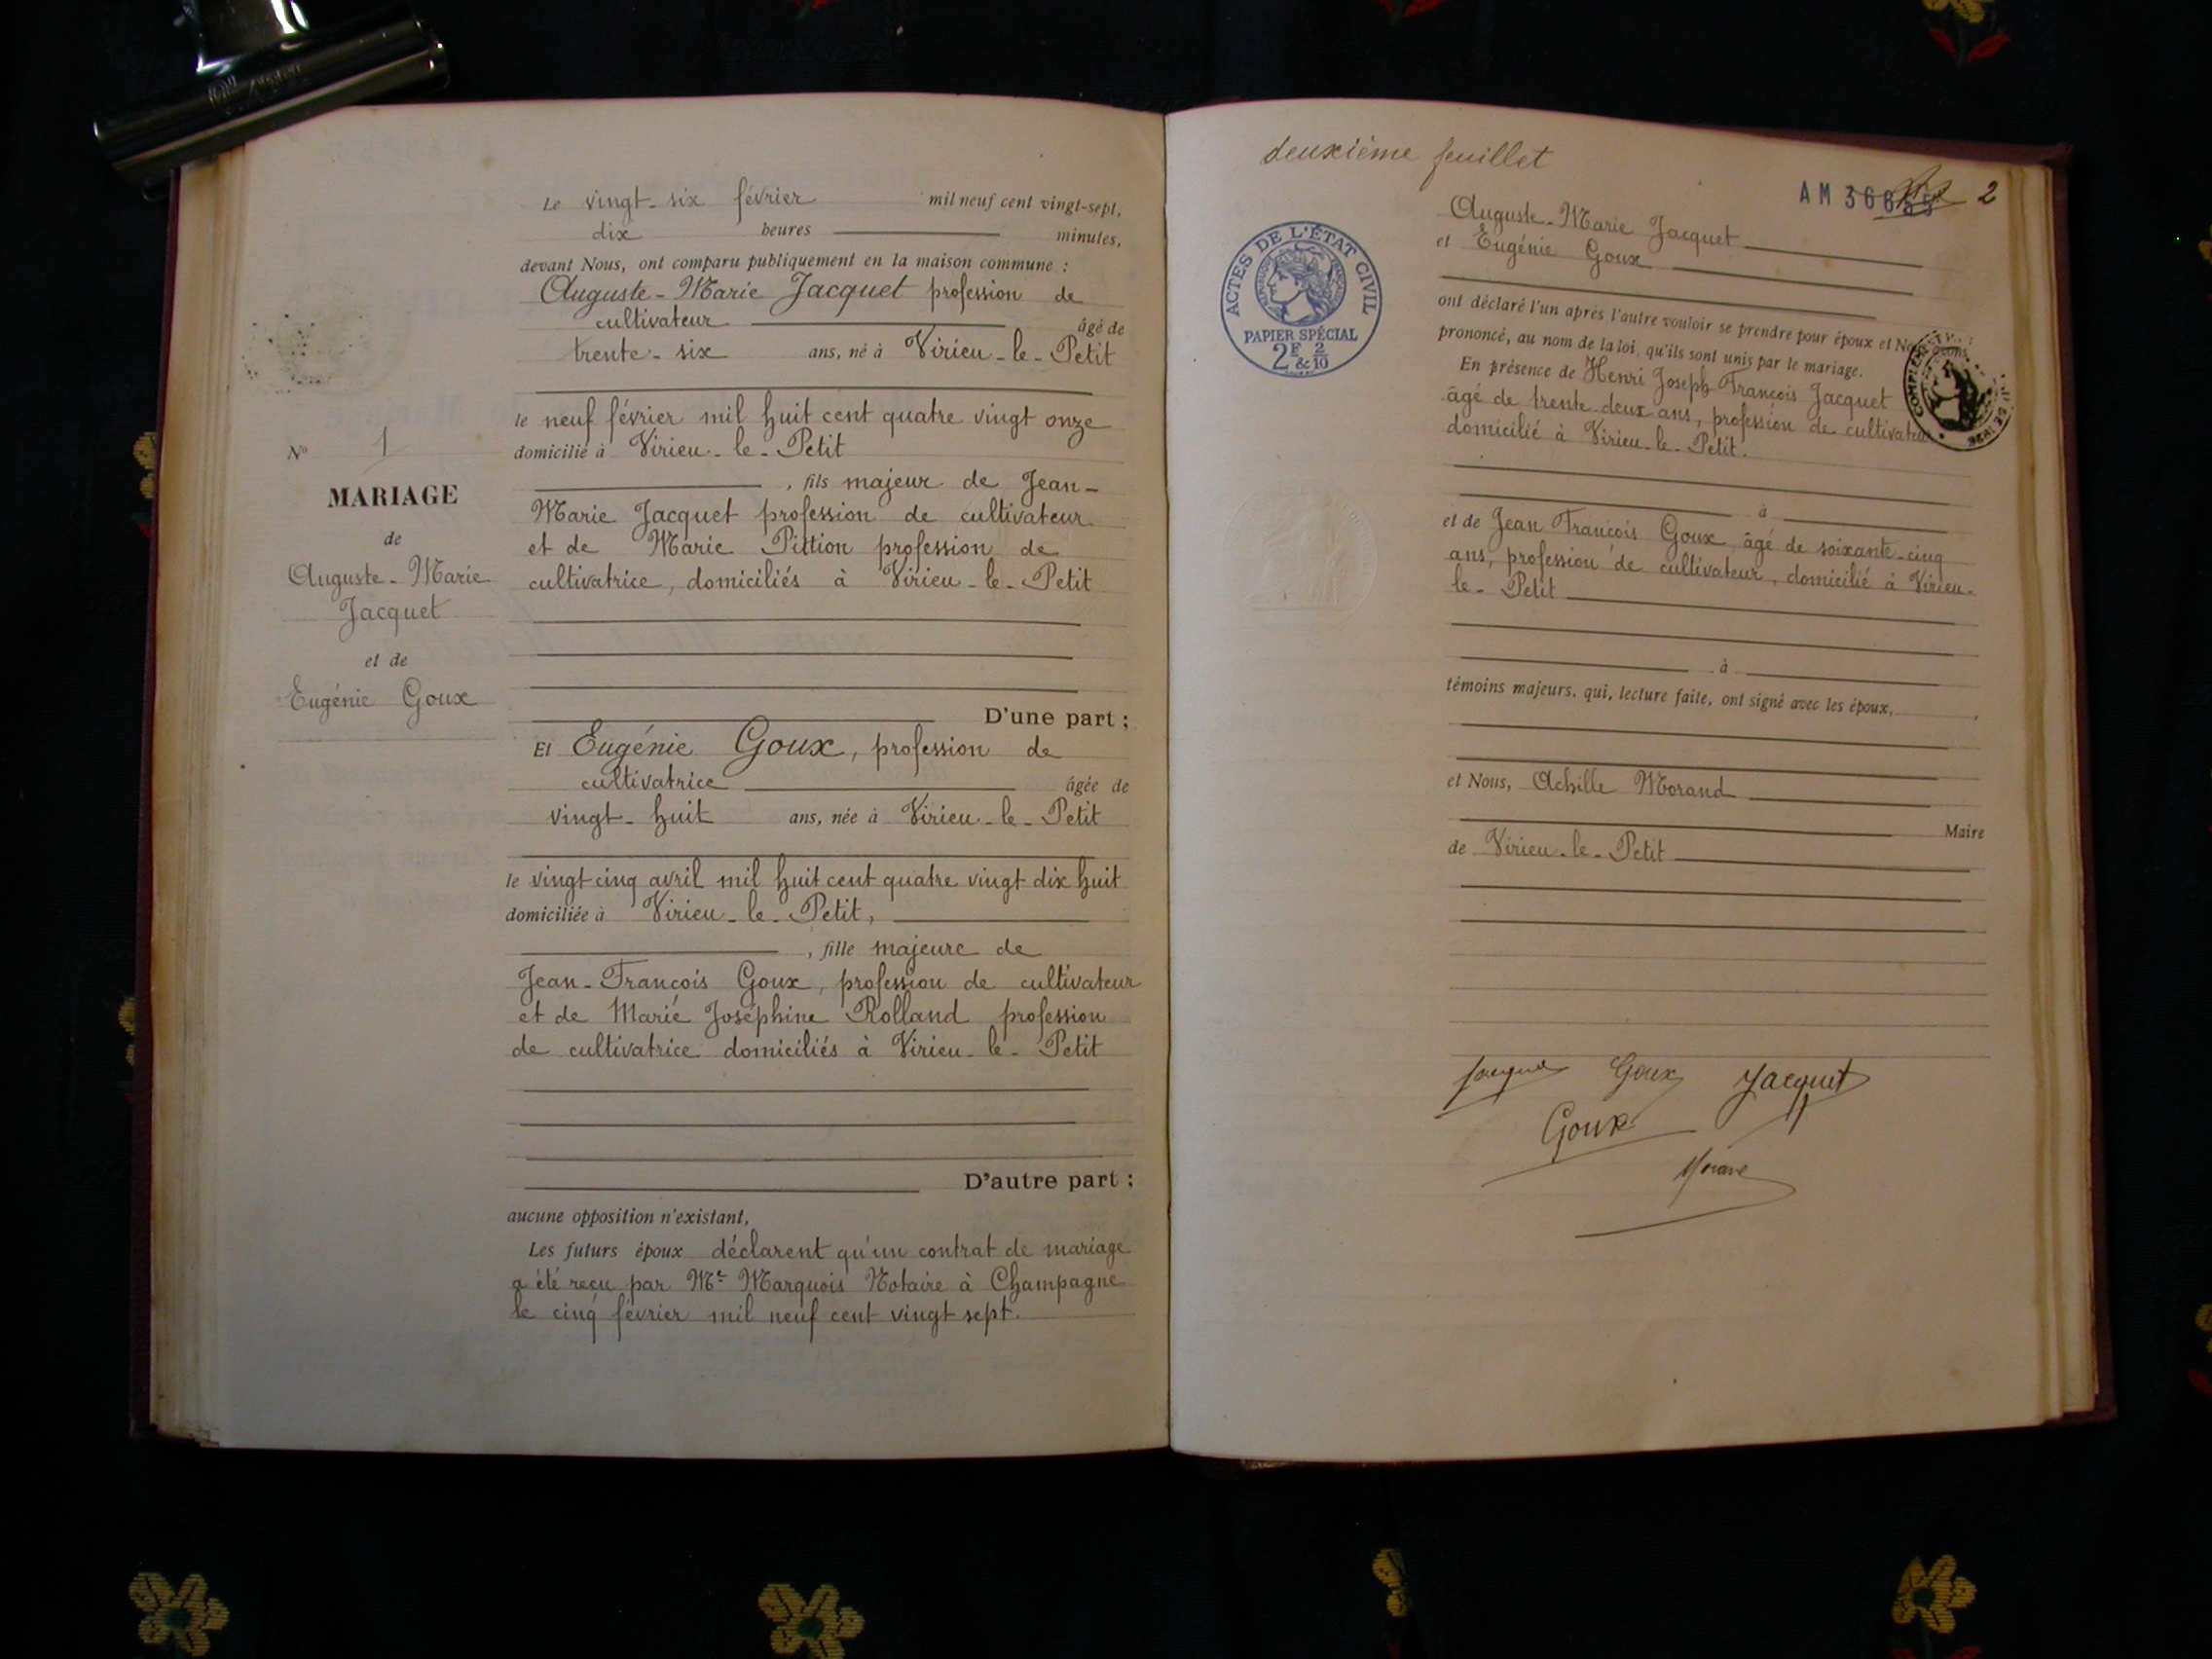 Le vingt-six février mil neuf cent vingt-sept,
dix heures minutes,
devant Nous, ont comparu publiquement en la maison commune :
Auguste-Marie Jacquet profession de
cultivateur âgé de
trente-six ans, né à Virieu-le-Petit
le neuf février mil huit cent quatre vingt onze
domicilié à Virieu-le-Petit
, fils majeur de Jean-
Marie Jacquet profession de cultivateur
et de Marie Piction profession de
cultivatrice, domiciliés à Virieu-le-Petit
D'une part ;
Et Eugénie Goux, profession de
cultivatrice âgée de
vingt-huit ans, née à Virieu-le-Petit
le vingt cinq avril mil huit cent quatre vingt dix huit
domiciliée à Virieu-le-Petit,
, fille majeure de
Jean-François Goux, profession de cultivateur
et de Marie Joséphine Rolland profession
de cultivatrice domiciliés à Virieu-le-Petit
D'autre part ;
aucune opposition n'existant,
Les futurs époux déclarent qu'un contrat de mariage
a été reçu par Me Marquois Notaire à Champagne
le cinq février mil neuf cent vingt sept.
No 1
MARIAGE
de
Auguste-Marie
Jacquet
et de
Eugénie Goux
deuxième feuillet
AM 2
ACTES DE L'ÉTAT CIVIL
RÉPUBLIQUE FRANÇAISE
PAPIER SPÉCIAL
2F & 2/10
Auguste-Marie Jacquet
et Eugénie Goux
ont déclaré l'un après l'autre vouloir se prendre pour époux et
prononcé, au nom de la loi, qu'ils sont unis par le mariage.
En présence de Henri Joseph François Jacquet
âgé de trente-deux ans, profession de cultivateur
domicilié à Virieu-le-Petit.
à
et de Jean François Goux, âgé de soixante-cinq
ans, profession de cultivateur, domicilié à Virieu-
le-Petit
à
témoins majeurs, qui, lecture faite, ont signé avec les époux,
et Nous, Achille Morand
Maire
de Virieu-le-Petit
Jacquet Goux Jacquet
Goux